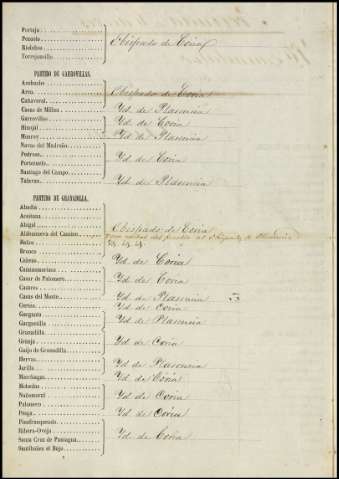 Portaje
Pozuelo
Riolobos
Torrejoncillo
Obispado de Coria
PARTIDO DE GARROVILLAS.
Acehuche
Arco
Obispado de Coria
Cañaveral
Casas de Millan
Yd. de Plasencia
Garrovillas
Yd. de Coria
Hinojal
Monroy
Yd. de Plasencia
Navas del Madroño
Pedroso
Yd. de Coria
Portezuelo
Santiago del Campo
Talavan
Yd. de Plasencia
PARTIDO DE GRANADILLA.
Abadía
Aceituna
Ahigal
Obispado de Coria
Aldeanueva del Camino
Baños
Bronco
Cabezo
Yd. de Coria
Caminomorisco
Casar de Palomero
Yd. de Coria
Casares
Casas del Monte
Yd. de Plasencia
Cerezo
Yd. de Coria
Garganta
Yd. de Plasencia
Gargantilla
Granadilla
Granja
Yd. de Coria
Guijo de Granadilla
Hervas
Yd. de Plasencia
Jarilla
Marchagaz
Yd. de Coria
Mohedas
Nuñomoral
Yd. de Coria
Palomero
Pesga
Yd. de Coria
Pinofranqueado
Ribera-Oveja
Yd. de Coria
Santa Cruz de Paniagua
Santibañez el Bajo